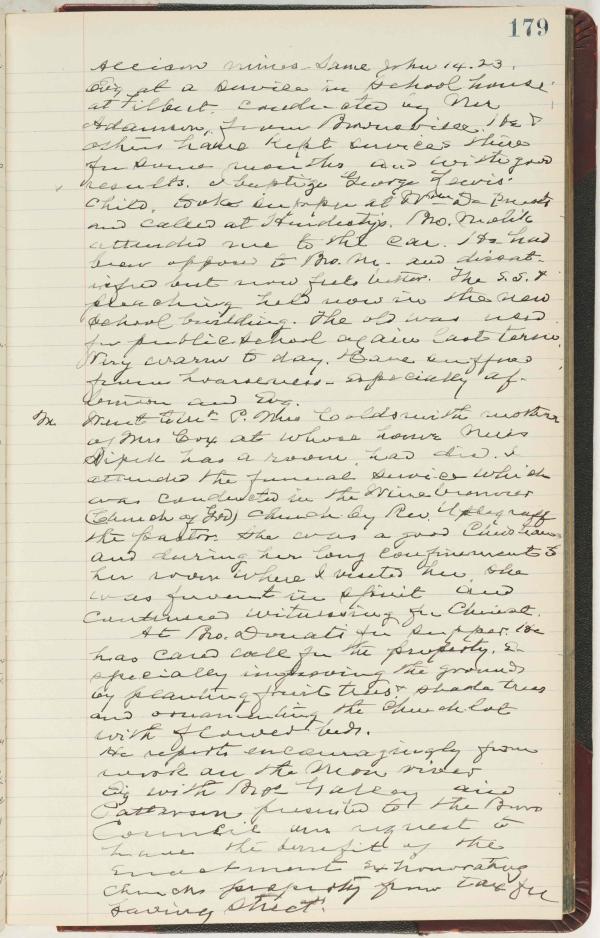 179
Allison mines. Same John 14.23.
Evg at a service in school house
at Filbert, conducted by Mr
Adamson, from Brownsville. He &
others have kept services there
for some months and with good
results. I baptize George Lewis'
child, took supper at Wm
and called at Hindertys. Bro. Malik
attended me to the car. He had
been oppose to Bro. M. and dissat-
isfied but now feels better. The S.S. &
preaching held now in the new
school building. The old was used
for public school again last term.
Very warm to day. Have suffered
from hoarseness - especially af-
ternoon and Evg.
M. Went to Mt. P. Mrs Goldsmith mother
of Mrs Cox at whose home Miss
has a room, had died. I
attended the funeral service which
was conducted in the Winebrenner
(Church of God) Church by Rev. Updegraff
the pastor. She was a good Christian
and during her long confinement to
her room where I visited her she
was fervent in spirit and
continued witnessing for Christ.
At Bro. Donati for supper. He
has cared well for the property, e-
specially improving the grounds
by planting fruit trees & shade trees
and ornamenting the Church lot
with flower beds.
He reports encouragingly from
work on the Mon river
Evg with Bros and
Patterson presented to the Boro
Council our request to
have the benefit of the
enactment exhonorating
church property from tax for
paving street.